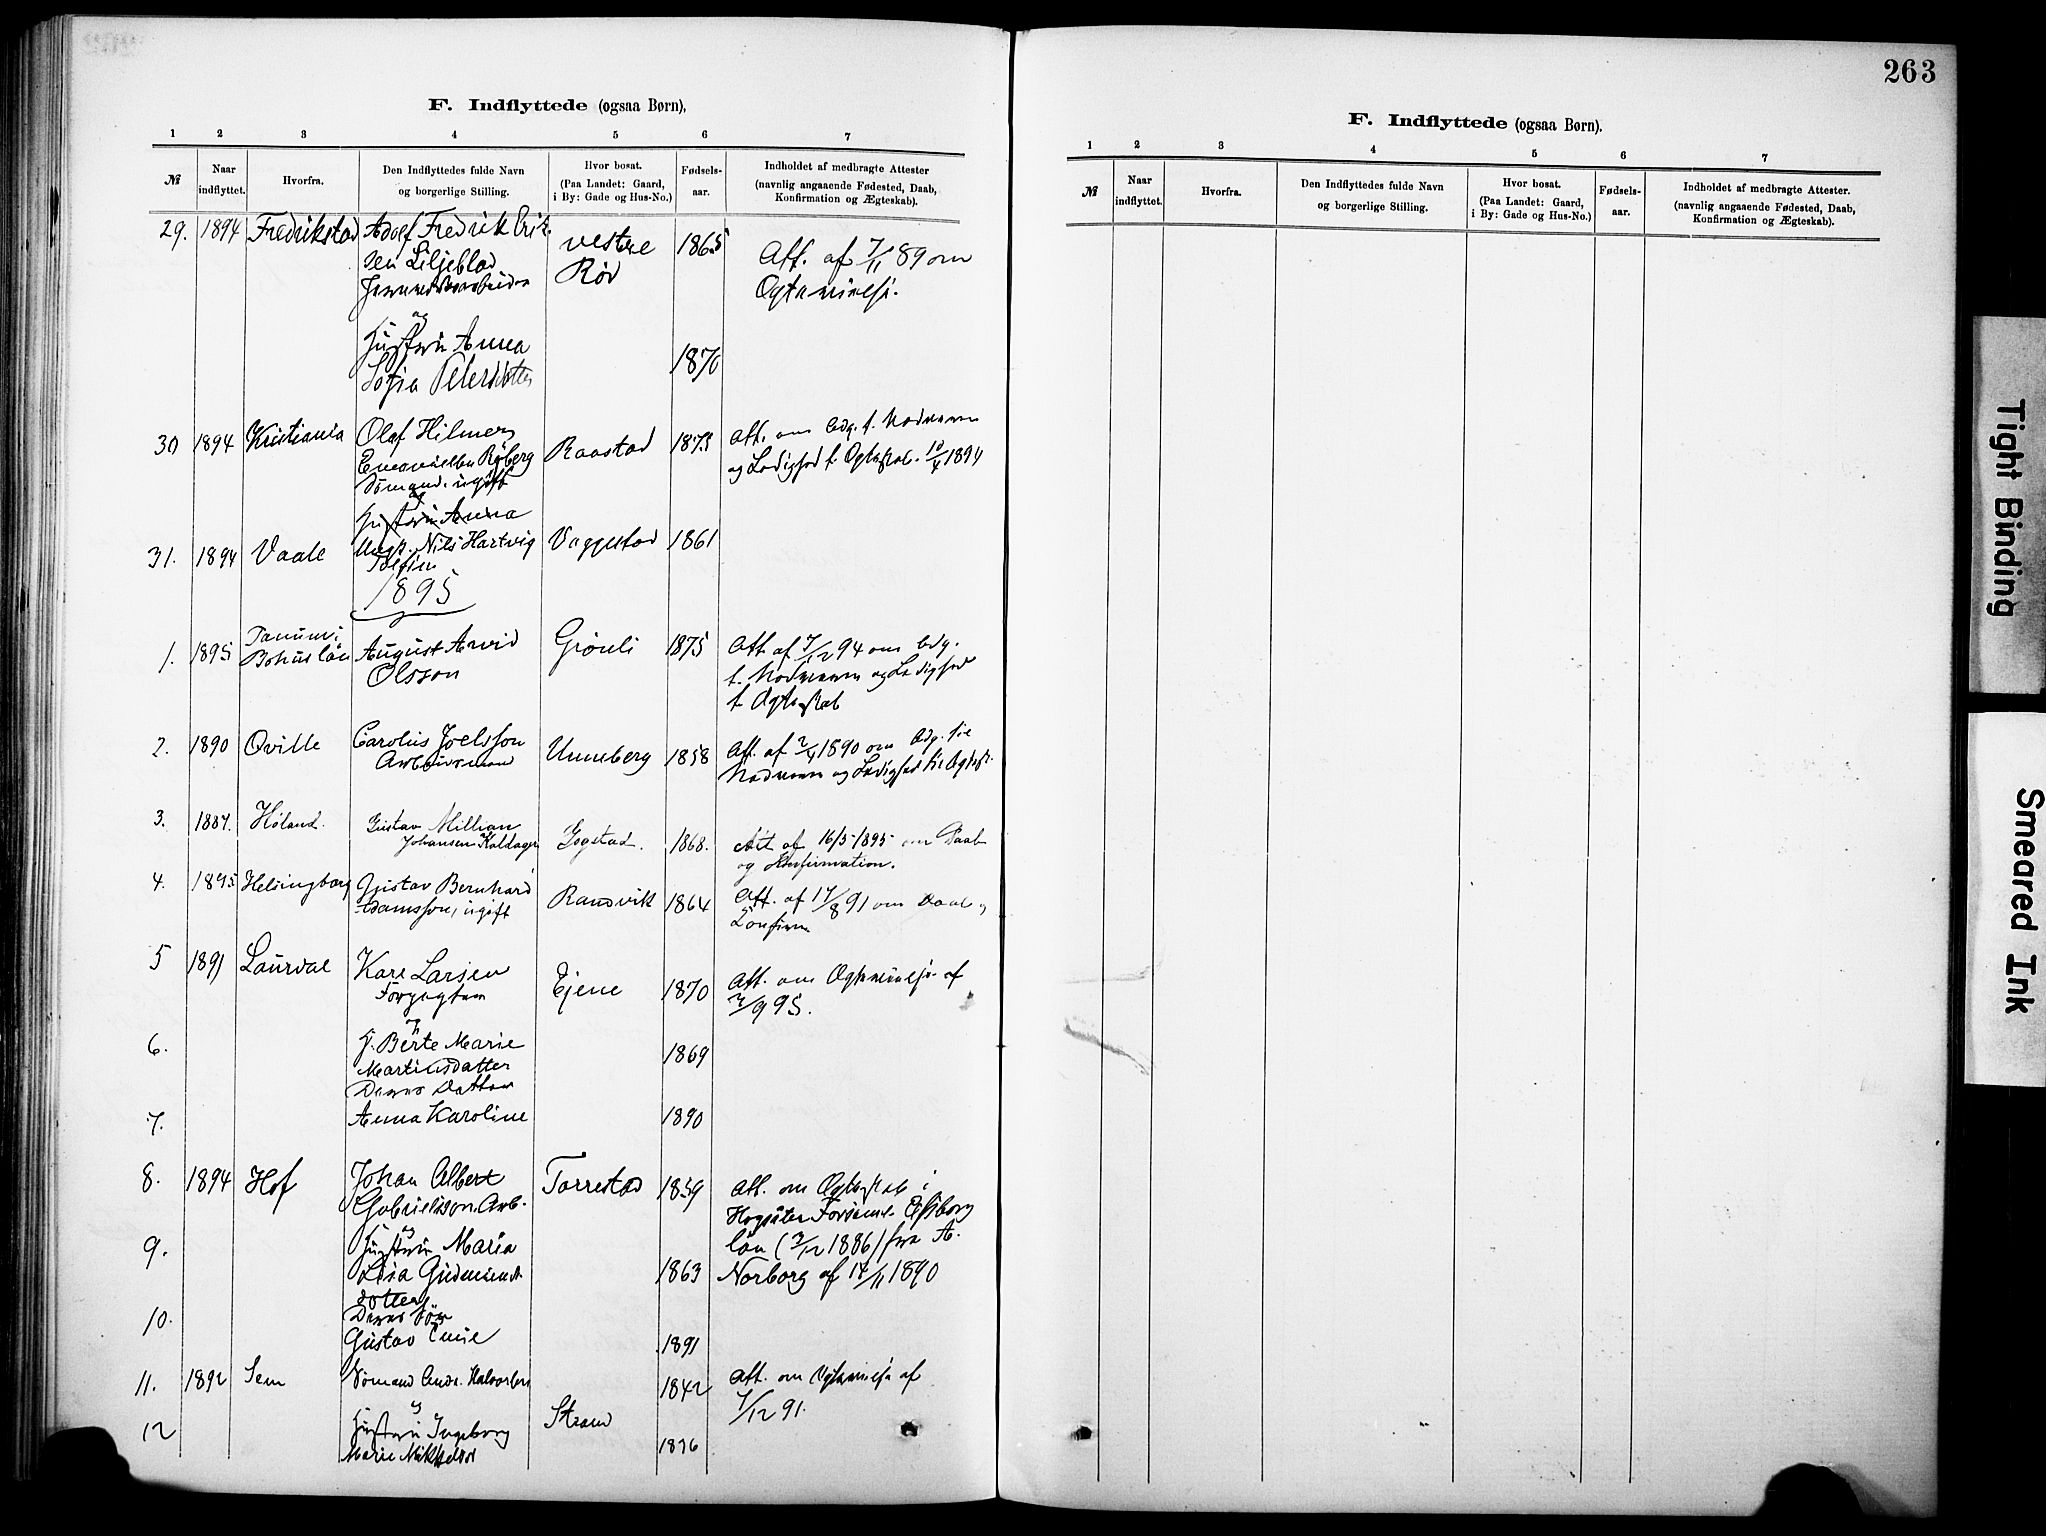 F. Indflyttede (ogsaa Børn),
1 2 3 4 5 6 7
№ Naar indflyttet. Hvorfra. Den Indflyttedes fulde Navn og borgerlige Stilling. Hvor bosat. (Paa Landet: Gaard, i By: Gade og Hus-No.) Fødsels-aar. Indholdet af medbragte Attester (navnlig angaaende Fødested, Daab, Konfirmation og Ægteskab).
29. 1894 Fredrikstad Adolf Fredrik Erik- vestre 1865 Att. af 7/11 89 om
sen Liljeblad Röd Ogtevielse.
og
Hustru Anna 1870
Sofia Petersdotter
30 1894 Kristiania Olaf Hilmer Raastad 1873 Att. om Adg. t. Nadveren
Emanuelsen Ryberg og Ledighed t. Ogteskab. 10/4 1894
Sömand. ugift
og
Hustru Anna
31. 1894 Vaale Ungk. Nils Hartvig Vaggestad 1861
1895
1. 1895 Tanum i August Arvid Grönli 1875 Att af 7/12 94 om Adg.
Bohuslän Olsson t. Nadveren og Ledighed
t Ogteskab
2. 1890 Qville Carolus Joelsson Unneberg 1858 Att. af 2/4 1890 om Adg. til
Arbeidsmand Nadveren og Ledighed til Ogtesk.
3. 1887. Höland. Gustav Millian Gogstad. 1868. Att af 16/5 1895 om Daab
Johansen Kaldager og Konfirmation.
4. 1895 Helsingborg Gustav Bernhard Ranvik 1864 Att. af 17/8 91 om Daab og
Adamsson, ugift Konfirm
5 1891 Laurdal Kare Larsen Ejene 1870 Att. om Ogtevielse af
Forpagter 2/9 95.
og
6. H. Berte Marie 1869
Martinsdatter
Deres Datter
7. Anna Karoline 1890
8. 1894 Hof Johan Albert Torrestad 1859 Att. om Ogteskab i
Gabrielsson Arb. Hogsäter Forsaml. Elfsborg
og
9. Hustru Maria län (3/12 1886) fra A.
Lisa Gudmunds- 1863 Norborg af 14/11 1890
dotter
10. Deres Sön
Gustav Emil 1891
11. 1892 Sem Sömand Andr. Halvorsen 1842 Att. om Ogtevielse af
og 7/12 91.
12 Hustru Ingeborg Strand 1836
Marie Mikkelsd
263
F. Indflyttede (ogsaa Børn).
1 2 3 4 5 6 7
№ Naar indflyttet. Hvorfra. Den Indflyttedes fulde Navn og borgerlige Stilling. Hvor bosat. (Paa Landet: Gaard, i By: Gade og Hus-No.) Fødsels-aar. Indholdet af medbragte Attester. (navnlig angaaende Fødested, Daab, Konfirmation og Ægteskab).
Tight Binding
Smeared Ink